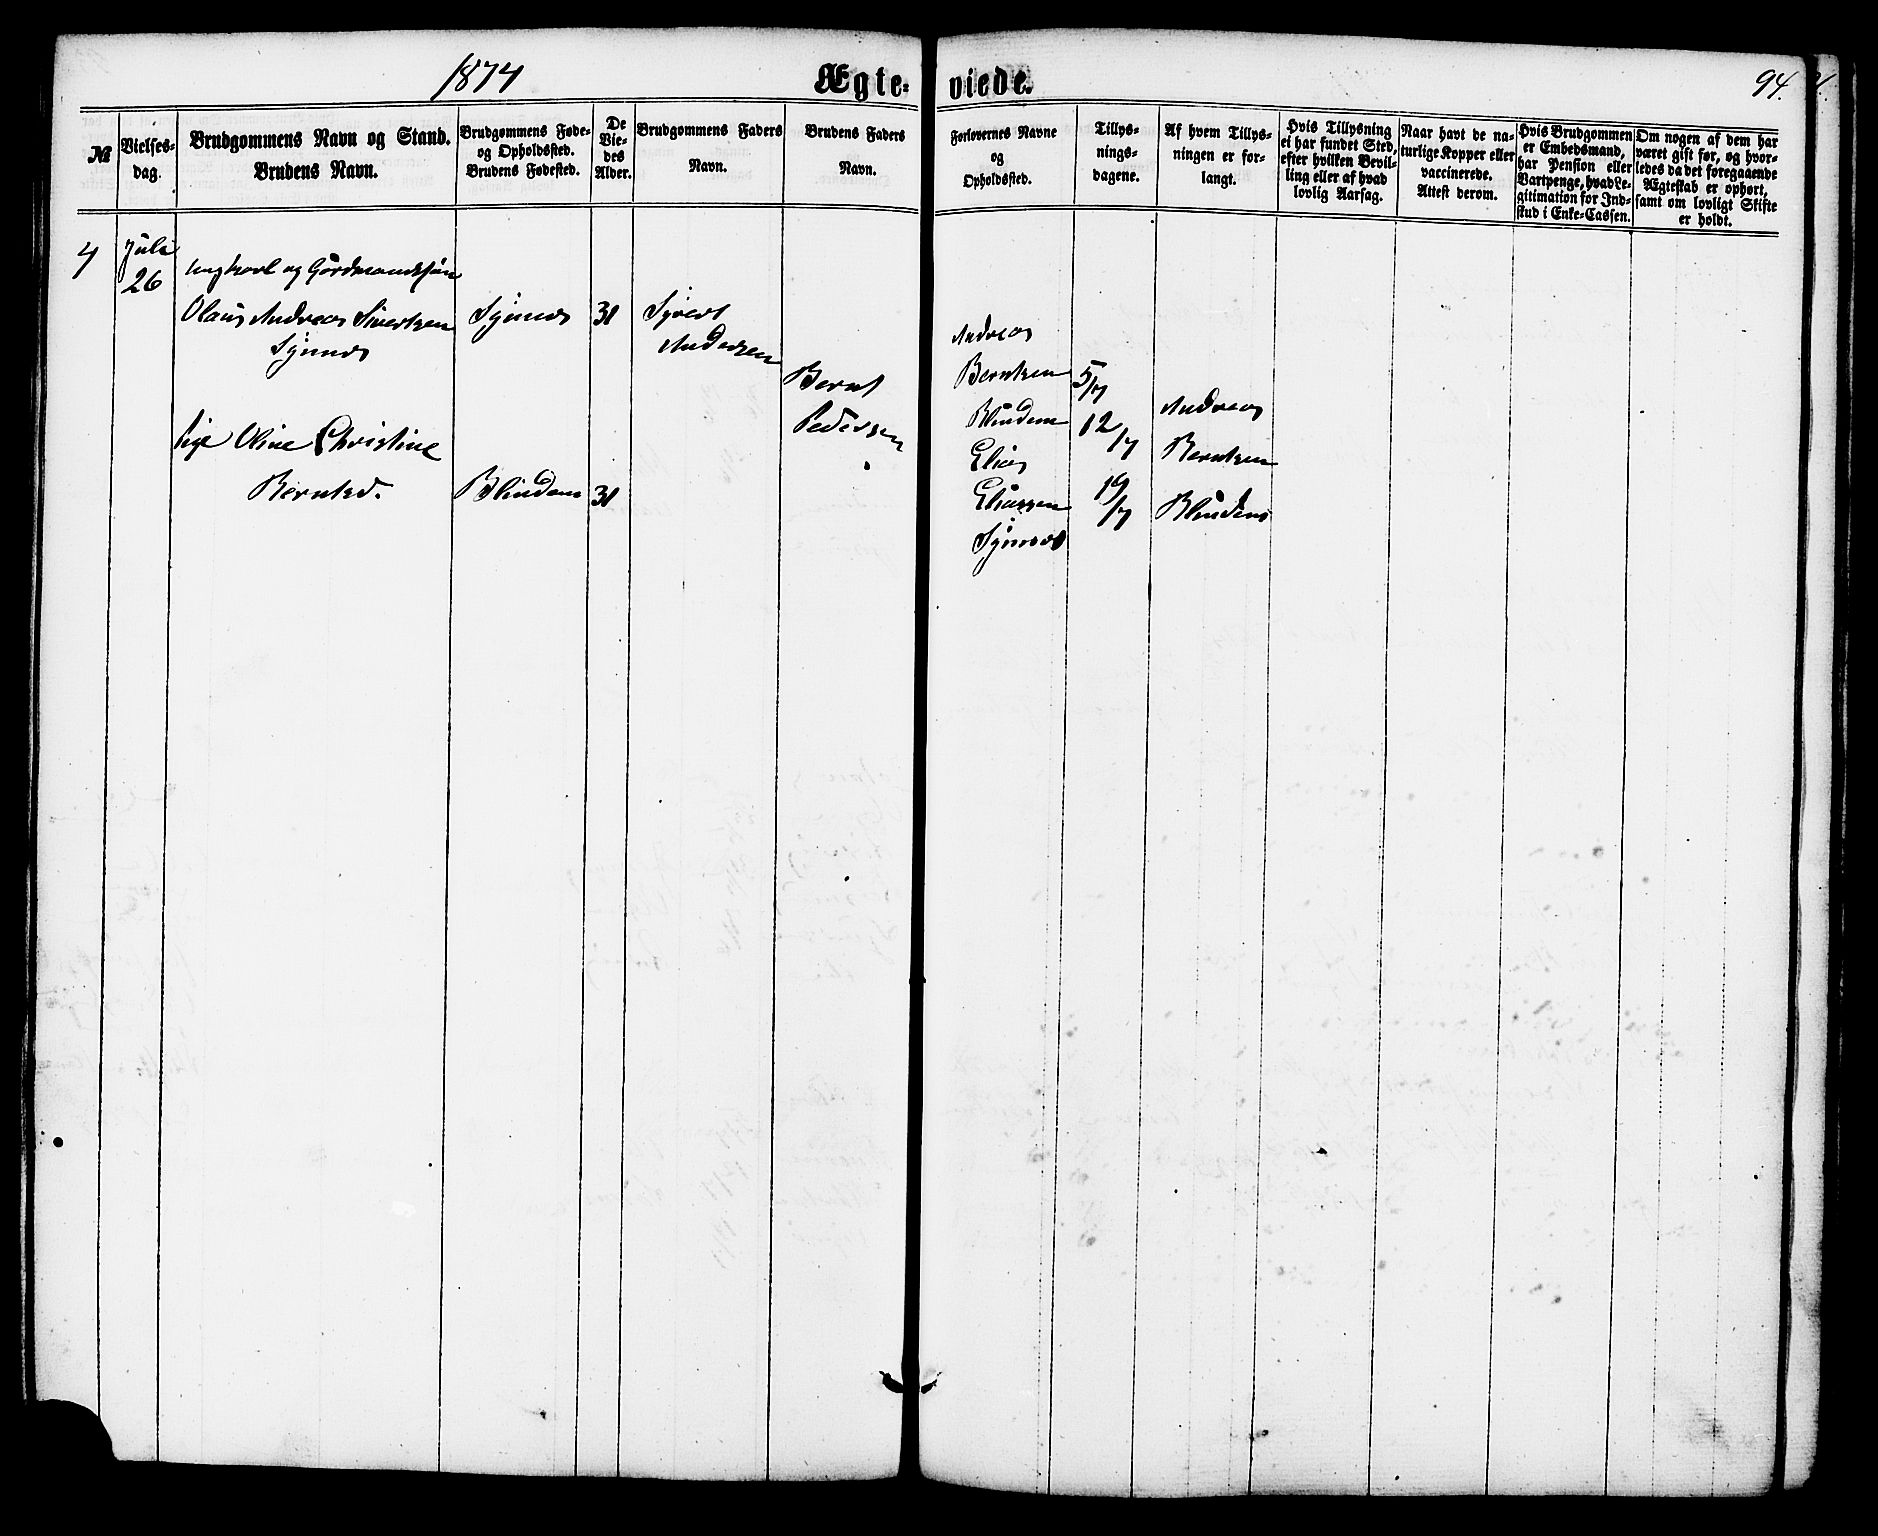 1874
Ægte-
viede.
94.
№
Vielses-
dag.
Brudgommens Navn og Stand.
Brudens Navn.
Brudgommens Føde-
og Opholdssted.
Brudens Fødested.
De
Vie-
des
Alder.
Brudgommens Faders
Navn.
Brudens Faders
Navn.
Forlovernes Navne
og
Opholdssted.
Tillys-
nings-
dagene.
Af hvem Tillys-
ningen er for-
langt.
Hvis Tillysning
ei har fundet Sted,
efter hvilken Bevil-
ling eller af hvad
lovlig Aarsag.
Naar havt de na-
turlige Kopper eller
vaccinerede.
Attest derom.
Hvis Brudgommen
er Embedsmand,
har Pension eller
Vartpenge, hvad Le-
gitimation for Ind-
skud i Enke-Cassen.
Om nogen af dem har
været gift før, og hvor-
ledes da det foregaaende
Ægteskab er ophørt,
samt om lovligt Skifte
er holdt.
7
Juli
26
ungkarl og Gårdmandssøn
Olaus Andreas Sivertsen
Synnes
Synnes
31
Syvert
Andersen
pige Oline Christine
Berntsd.
Blindem
31
Bernt
Pedersen
Andreas
Berntsen
Blindem
Elias
Eliassen
Synnes
5/7
12/7
19/7
Andreas
Berntsen
Blindem